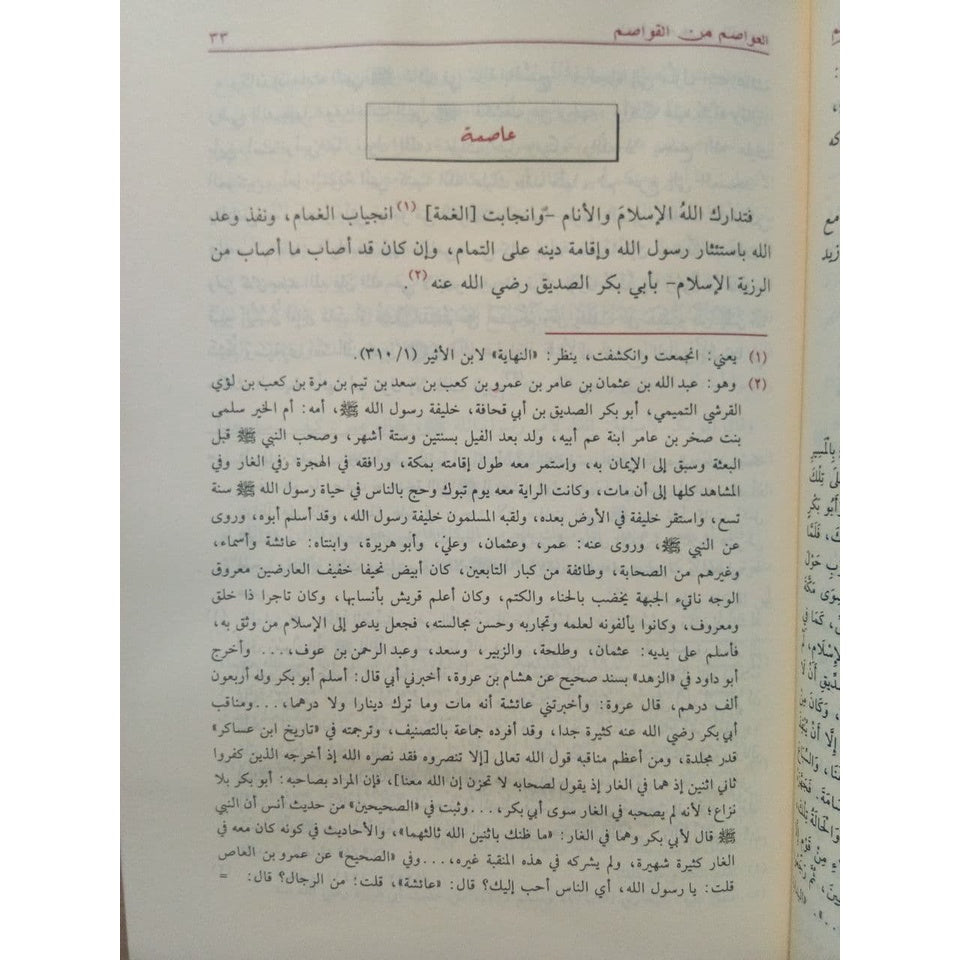 العواصم من القواصم
٣٣
عاصمة
فتدارك اللهُ الإسلامَ والأنام -وانجابت [الغمة] (١) انجياب الغمام، ونفذ وعد
الله باستئثار رسول الله وإقامة دينه على التمام، وإن كان قد أصاب ما أصاب من
الرزية الإسلام- بأبي بكر الصديق رضي الله عنه(٢).
(١) يعني: انجمعت وانكشفت، ينظر: «النهاية» لابن الأثير (٣١٠/١).
(٢) وهو: عبد الله بن عثمان بن عامر بن عمرو بن كعب بن سعد بن تيم بن مرة بن كعب بن لؤي
القرشي التميمي، أبو بكر الصديق بن أبي قحافة، خليفة رسول الله ﷺ، أمه: أم الخير سلمى
بنت صخر بن عامر ابنة عم أبيه، ولد بعد الفيل بسنتين وستة أشهر، وصحب النبي ﷺ قبل
البعثة وسبق إلى الإيمان به، واستمر معه طول إقامته بمكة، ورافقه في الهجرة رفي الغار وفي
المشاهد كلها إلى أن مات، وكانت الراية معه يوم تبوك وحج بالناس في حياة رسول الله ﷺ سنة
تسع، واستقر خليفة في الأرض بعده، ولقبه المسلمون خليفة رسول الله، وقد أسلم أبوه، وروى
عن النبي ﷺ، وروى عنه: عمر، وعثمان، وعلي، وأبو هريرة، وابنتاه: عائشة وأسماء،
وغيرهم من الصحابة، وطائفة من كبار التابعين، كان أبيض نحيفا خفيف العارضين معروق
الوجه ناتيء الجبهة يخضب بالحناء والكتم، وكان أعلم قريش بأنسابها، وكان تاجرا ذا خلق
ومعروف، وكانوا يألفونه لعلمه وتجاربه وحسن مجالسته، فجعل يدعو إلى الإسلام من وثق به،
فأسلم على يديه: عثمان، وطلحة، والزبير، وسعد، وعبد الرحمن بن عوف،... وأخرج
أبو داود في «الزهد» بسند صحيح عن هشام بن عروة، أخبرني أبي قال: أسلم أبو بكر وله أربعون
ألف درهم، قال عروة: وأخبرتني عائشة أنه مات وما ترك دينارا ولا درهما،...ومناقب
أبي بكر رضي الله عنه كثيرة جدا، وقد أفرده جماعة بالتصنيف، وترجمته في «تاريخ ابن عساكر»
قدر مجلدة، ومن أعظم مناقبه قول الله تعالى [إلا تنصروه فقد نصره الله إذ أخرجه الذين كفروا
ثاني اثنين إذ هما في الغار إذ يقول لصحابه لا تحزن إن الله معنا]، فإن المراد بصاحبه: أبو بكر بلا
نزاع؛ لأنه لم يصحبه في الغار سوى أبي بكر،...وثبت في «الصحيحين» من حديث أنس أن النبي
ﷺ قال لأبي بكر وهما في الغار: «ما ظنك باثنين الله ثالثهما»، والأحاديث في كونه كان معه في
الغار كثيرة شهيرة، ولم يشركه في هذه المنقبة غيره،...وفي «الصحيح» عن عمرو بن العاص
قلت: يا رسول الله، أي الناس أحب إليك؟ قال: «عائشة»، قلت: من الرجال؟ قال: =